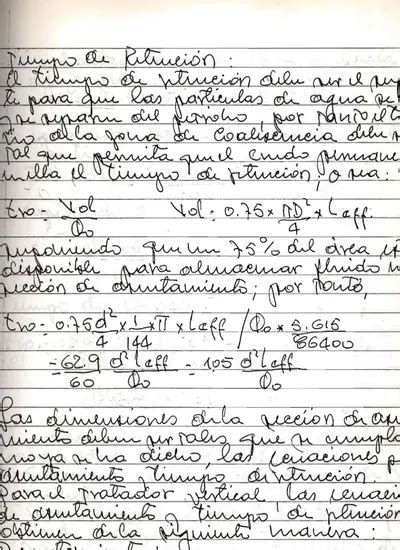 Tiempo de Retención :
El tiempo de retención debe ser el
te para que las partículas de agua se
se separen del petróleo, por tanto el
de la zona de Coalescencia debe
tal que permita que el crudo permane
en ella el tiempo de retención, o sea:
tro = Vol / Qo Vol = 0.75 x πD² / 4 x Leff.
suponiendo que un 75% del área es
disponible para almacenar fluido
sección de asentamiento; por tanto,
tro = 0.75 d² / 4 x 1 / 144 x π x Leff / Qo x 5.615 / 86400
= 62.9 / 60 d² Leff / Qo = 1.05 d² Leff / Qo
Las dimensiones de la sección de asen
miento deben ser tales que se cumpla
mo ya se ha dicho, las ecuaciones
asentamiento y tiempo de retención.
Para el tratador vertical las ecuaci
de asentamiento y tiempo de retención
obtienen de la siguiente manera :